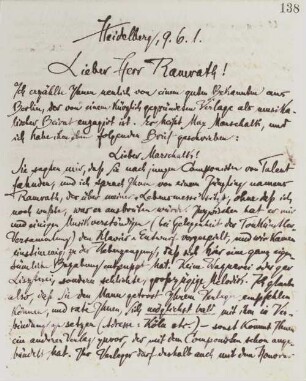 138
Heidelberg, 9. 6. 1.
Lieber Herr Ramrath!
Ich erzählte Ihnen neulich von einem guten Bekannten aus
Berlin, der von einem kürzlich gegründeten Verlage als musika-
lischer Beirat engagirt ist. Er heißt Max Marschalk, und
ich habe ihm folgenden Brief geschrieben:
Lieber Marschalk!
Sie sagten mir, daß Sie nach jungen Componisten von Talent
fahnden, und ich sprach Ihnen von einem Jüngling namens
Ramrath, der über meiner „Lebensmesse" brütete, ohne daß ich
noch wußte, was er ausbrüten würde. Inzwischen hat er mir
und einigen Musikverständigen, bei Gelegenheit der Tonkünstler-
Versammlung den Klavier-Entwurf vorgespielt, und wir kamen
einstimmig zu der Überzeugung, daß sich hier eine ganz eigen-
tümliche Begabung entpuppt hat. Keine Wagnerei oder gar
Liszterei, sondern schlichte, großzügige Melodik. Ich glaube
also, daß Sie den Mann getrost Ihrem Verlage empfehlen
können, und rate Ihnen, sich möglichst bald mit ihm in Ver-
bindung zu setzen (Adresse: Köln etc.) – sonst kommt Ihnen
ein anderer Verlag zuvor, der mit dem Componisten schon ange-
bändelt hat. Ihr Verleger darf deshalb auch mit dem Honorar